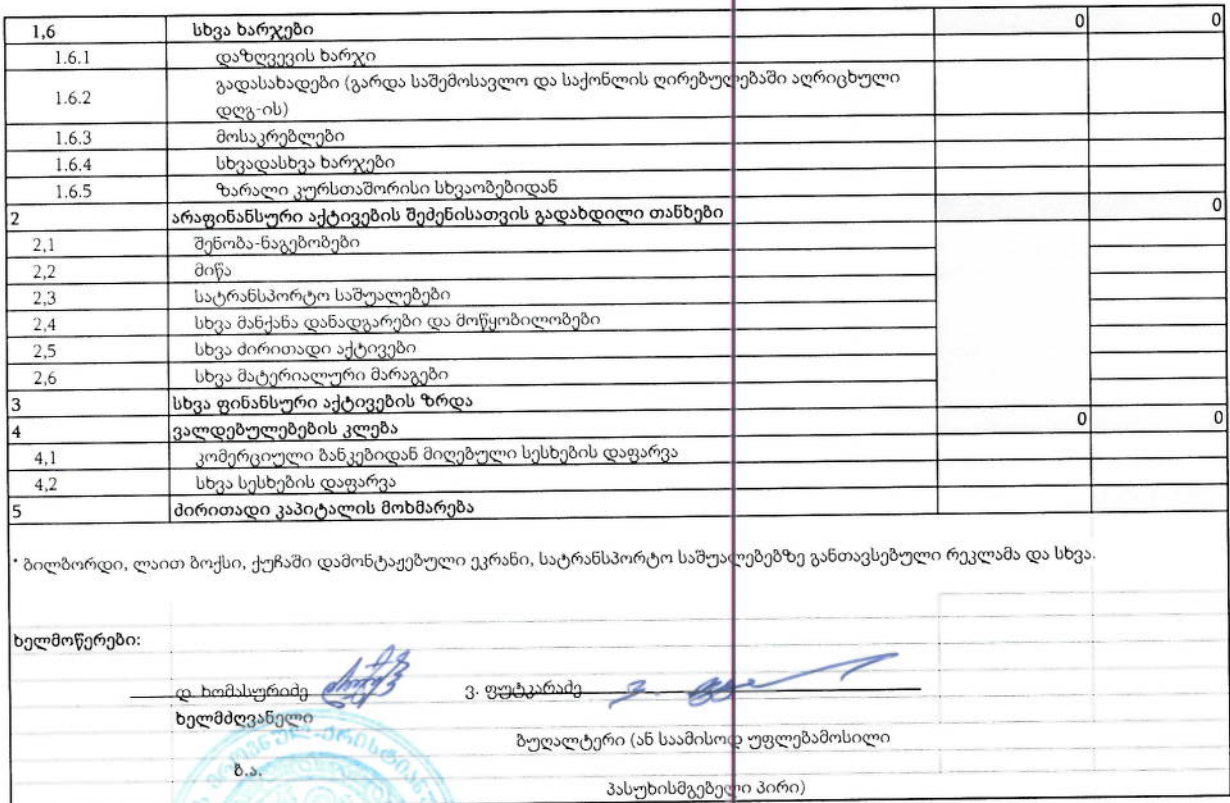 1,6 სხვა ხარჯები 0 0
1.6.1 დაზღვევის ხარჯი
1.6.2 გადასახადები (გარდა საშემოსავლო და საქონლის ღირებულებაში აღრიცხული
დღგ-ის)
1.6.3 მოსაკრებლები
1.6.4 სხვადასხვა ხარჯები
1.6.5 ზარალი კურსთაშორისი სხვაობებიდან
2 არაფინანსური აქტივების შეძენისათვის გადახდილი თანხები 0
2,1 შენობა-ნაგებობები
2,2 მიწა
2,3 სატრანსპორტო საშუალებები
2,4 სხვა მანქანა დანადგარები და მოწყობილობები
2,5 სხვა ძირითადი აქტივები
2,6 სხვა მატერიალური მარაგები
3 სხვა ფინანსური აქტივების ზრდა
4 ვალდებულებების კლება 0 0
4,1 კომერციული ბანკებიდან მიღებული სესხების დაფარვა
4,2 სხვა სესხების დაფარვა
5 ძირითადი კაპიტალის მოხმარება
* ბილბორდი, ლაით ბოქსი, ქუჩაში დამონტაჟებული ეკრანი, სატრანსპორტო საშუალებებზე განთავსებული რეკლამა და სხვა.
ხელმოწერები:
დ. ხომასურიძე ვ. ფუტკარაძე
ხელმძღვანელი
ბუღალტერი (ან საამისოდ უფლებამოსილი
ბ.ა.
პასუხისმგებელი პირი)